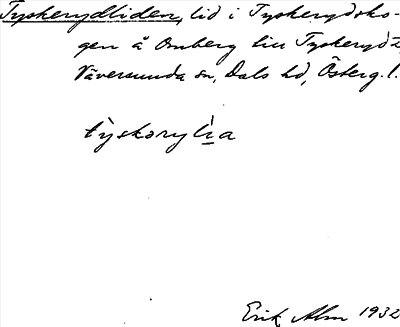 Tyskerydliden, lid i Tyskerydsko-
gen å Omberg till Tyskeryd i
Väversunda sn, Dals hd, Österg. l.
tyskəryli̲a
Erik Alm 1932